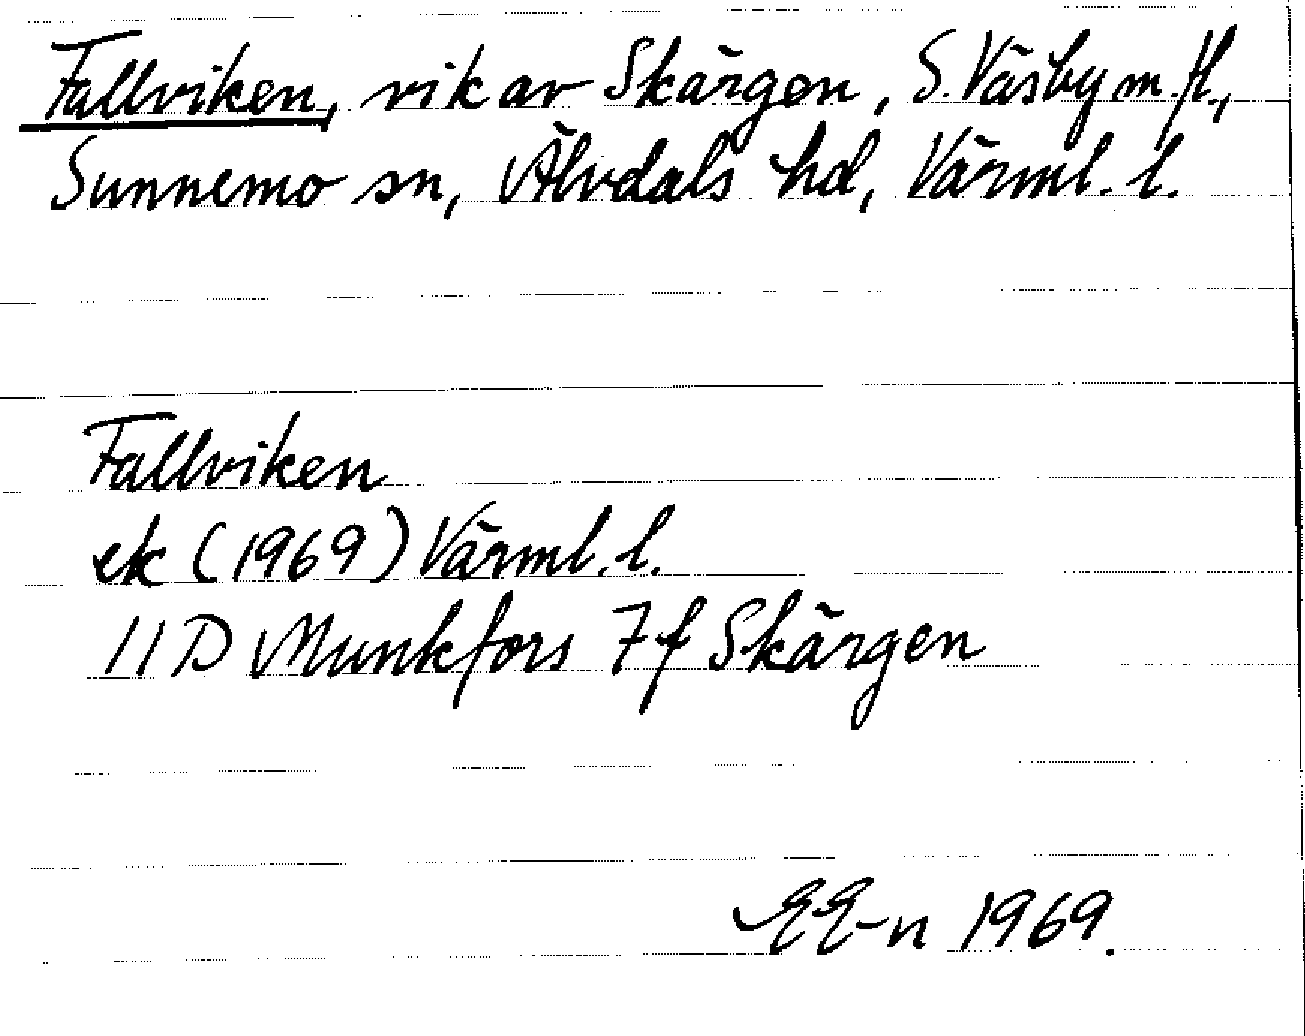 Fallviken, vik av Skärgen, S. Väsby m. fl.,
Sunnemo sn, Älvdals hd, Värml. l.
Fallviken
ek (1969) Värml. l.
11 D Munkfors 7 f Skärgen
EE-n 1969.